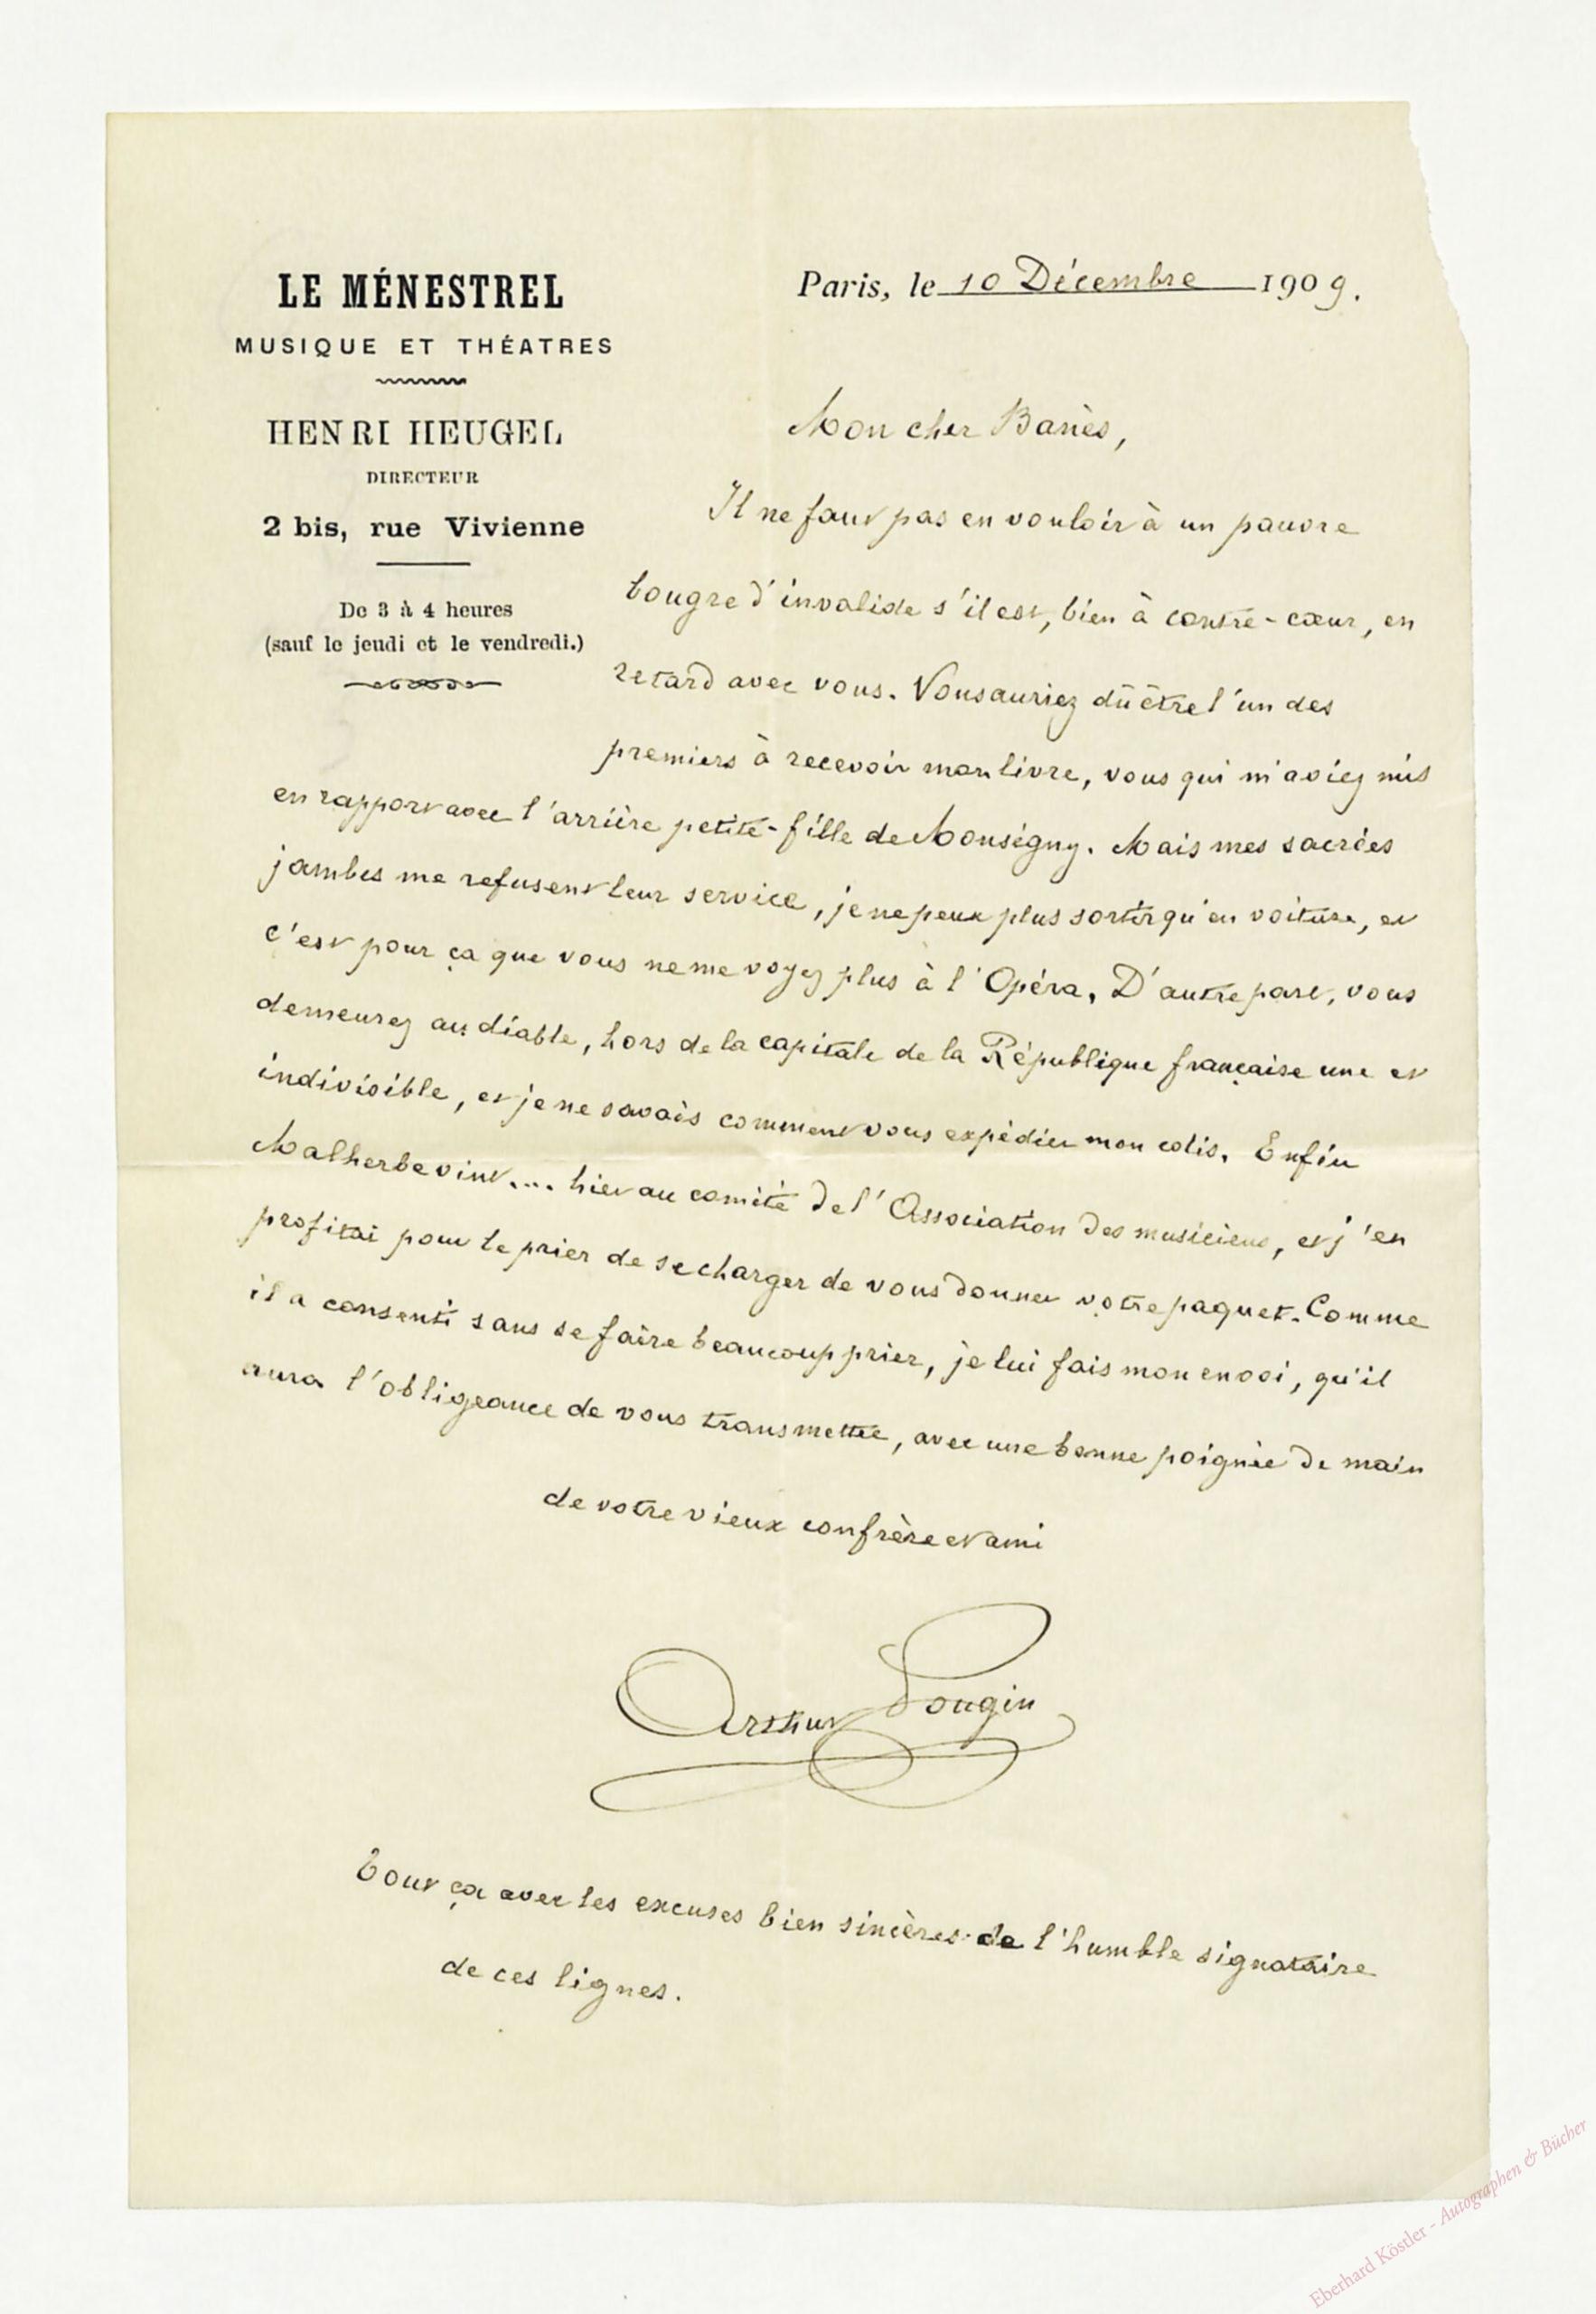 LE MÉNESTREL
MUSIQUE ET THÉATRES
HENRI HEUGEL
DIRECTEUR
2 bis, rue Vivienne
De 3 à 4 heures
(sauf le jeudi et le vendredi.)
Paris, le 10 Décembre 1909.
Mon cher Banès,
Il ne faut pas en vouloir à un pauvre
bougre d'invalide s'il est, bien à contre-cœur, en
retard avec vous. Vous auriez dû être l'un des
premiers à recevoir mon livre, vous qui m'aviez mis
en rapport avec l'arrière petite-fille de Monsigny. Mais mes sacrées
jambes me refusent leur service, je ne peux plus sortir qu'en voiture, et
c'est pour ça que vous ne me voyez plus à l'Opéra. D'autre part, vous
demeurez au diable, hors de la capitale de la République française une et
indivisible, et je ne savais comment vous expédier mon colis. Enfin
Malherbe vint.... hier au comité de l'Association des musiciens, et j'en
profitai pour le prier de se charger de vous donner votre paquet. Comme
il a consenti sans se faire beaucoup prier, je lui fais mon envoi, qu'il
aura l'obligeance de vous transmettre, avec une bonne poignée de main
de votre vieux confrère et ami
Arthur Pougin
Tout ça avec les excuses bien sincères de l'humble signataire
de ces lignes.
Eberhard Köstler - Autographen & Bücher